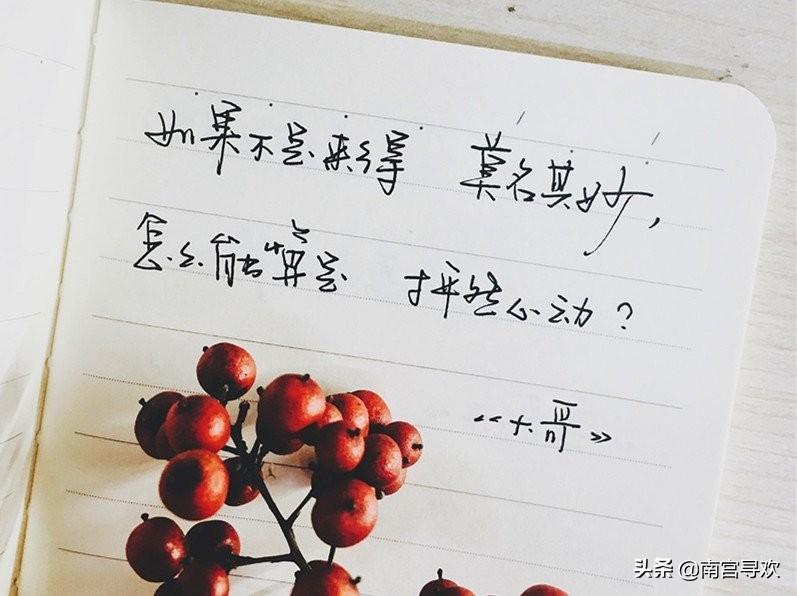 如果不是来得 莫名其妙，
怎么能算是 怦然心动？
《大哥》
头条 @南宫寻欢